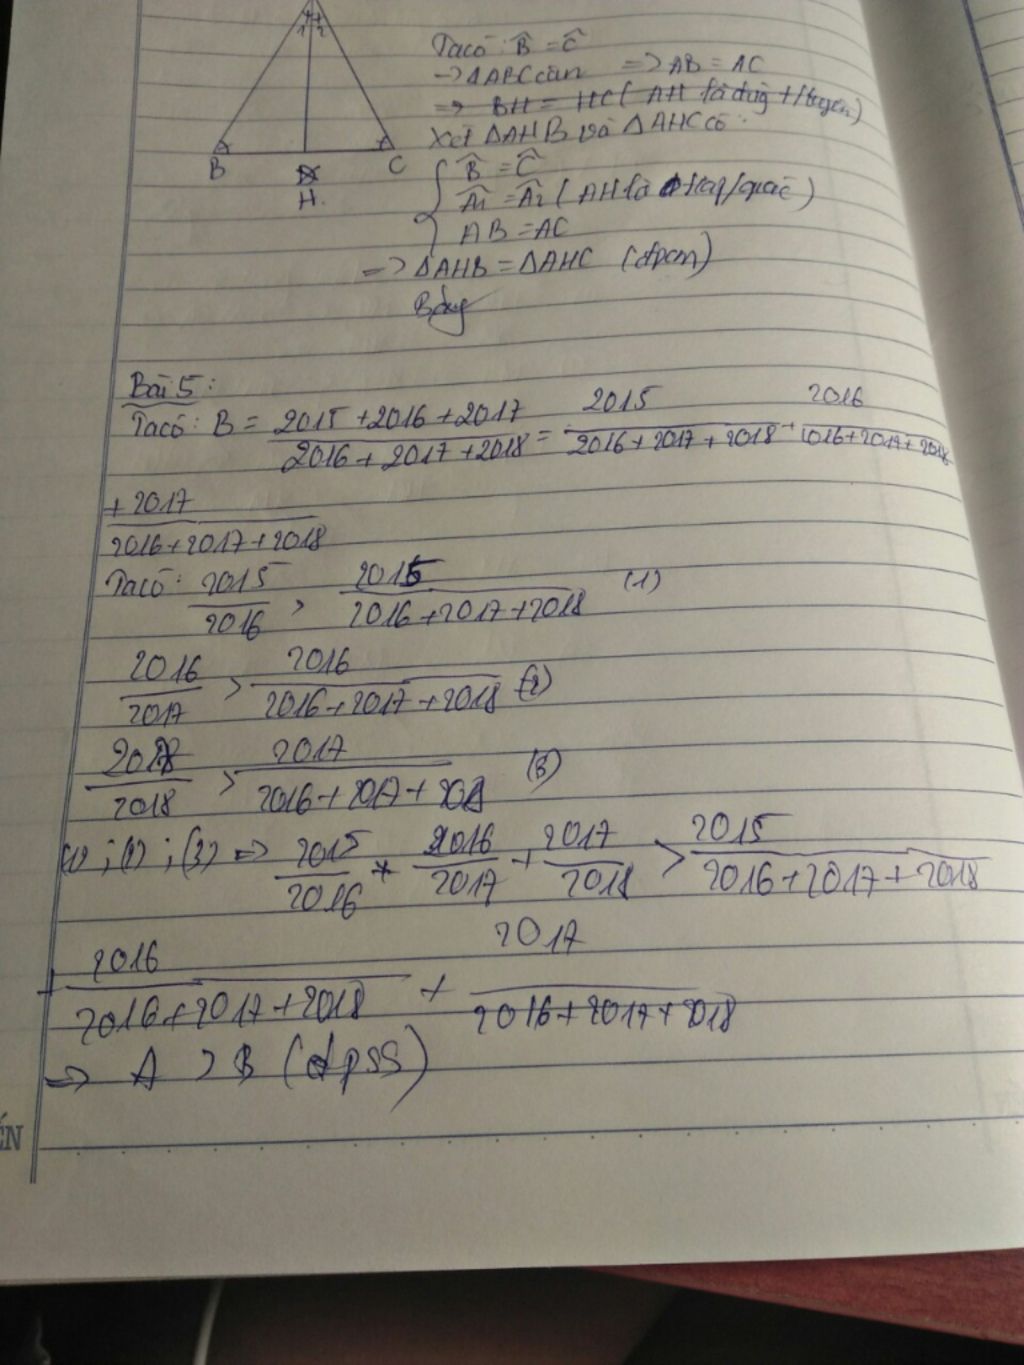 1 2
B C
H.
Ta có: B̂ = Ĉ
→ ΔABC cân => AB = AC
=> BH = HC ( AH là đường
Xét ΔAHB và ΔAHC có:
B̂ = Ĉ
Â1 = Â2 ( AH là )
AB = AC
=> ΔAHB = ΔAHC (đpcm)
Bài 5:
Ta có: B = (2015 + 2016 + 2017)/(2016 + 2017 + 2018) = 2015/(2016 + 2017 + 2018) + 2016/(2016 + 2017 + 2018)
+ 2017/(2016 + 2017 + 2018)
Ta có: 2015/2016 > 2015/(2016 + 2017 + 2018) (1)
2016/2017 > 2016/(2016 + 2017 + 2018) (2)
/2018 > 2017/(2016 + 2017 + 2018) (3)
(1) ; (2) ; (3) => 2015/2016 + 2016/2017 + 2017/2018 > 2015/(2016 + 2017 + 2018)
+ 2016/(2016 + 2017 + 2018) + 2017/(2016 + 2017 + 2018)
=> A > B (đpss)
ẾN